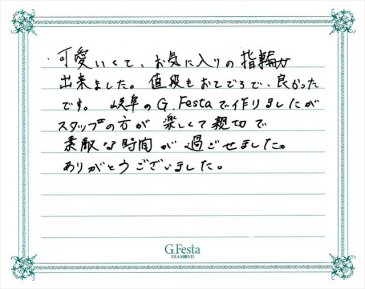 可愛いくて、お気に入りの指輪が
出来ました。値段もおてごろで、良かった
です。 岐阜のG.Festaで作りましたが
スタッフの方が 楽しくて親切で
素敵な時間が過ごせました。
ありがとうございました。
G.Festa
DIAMOND